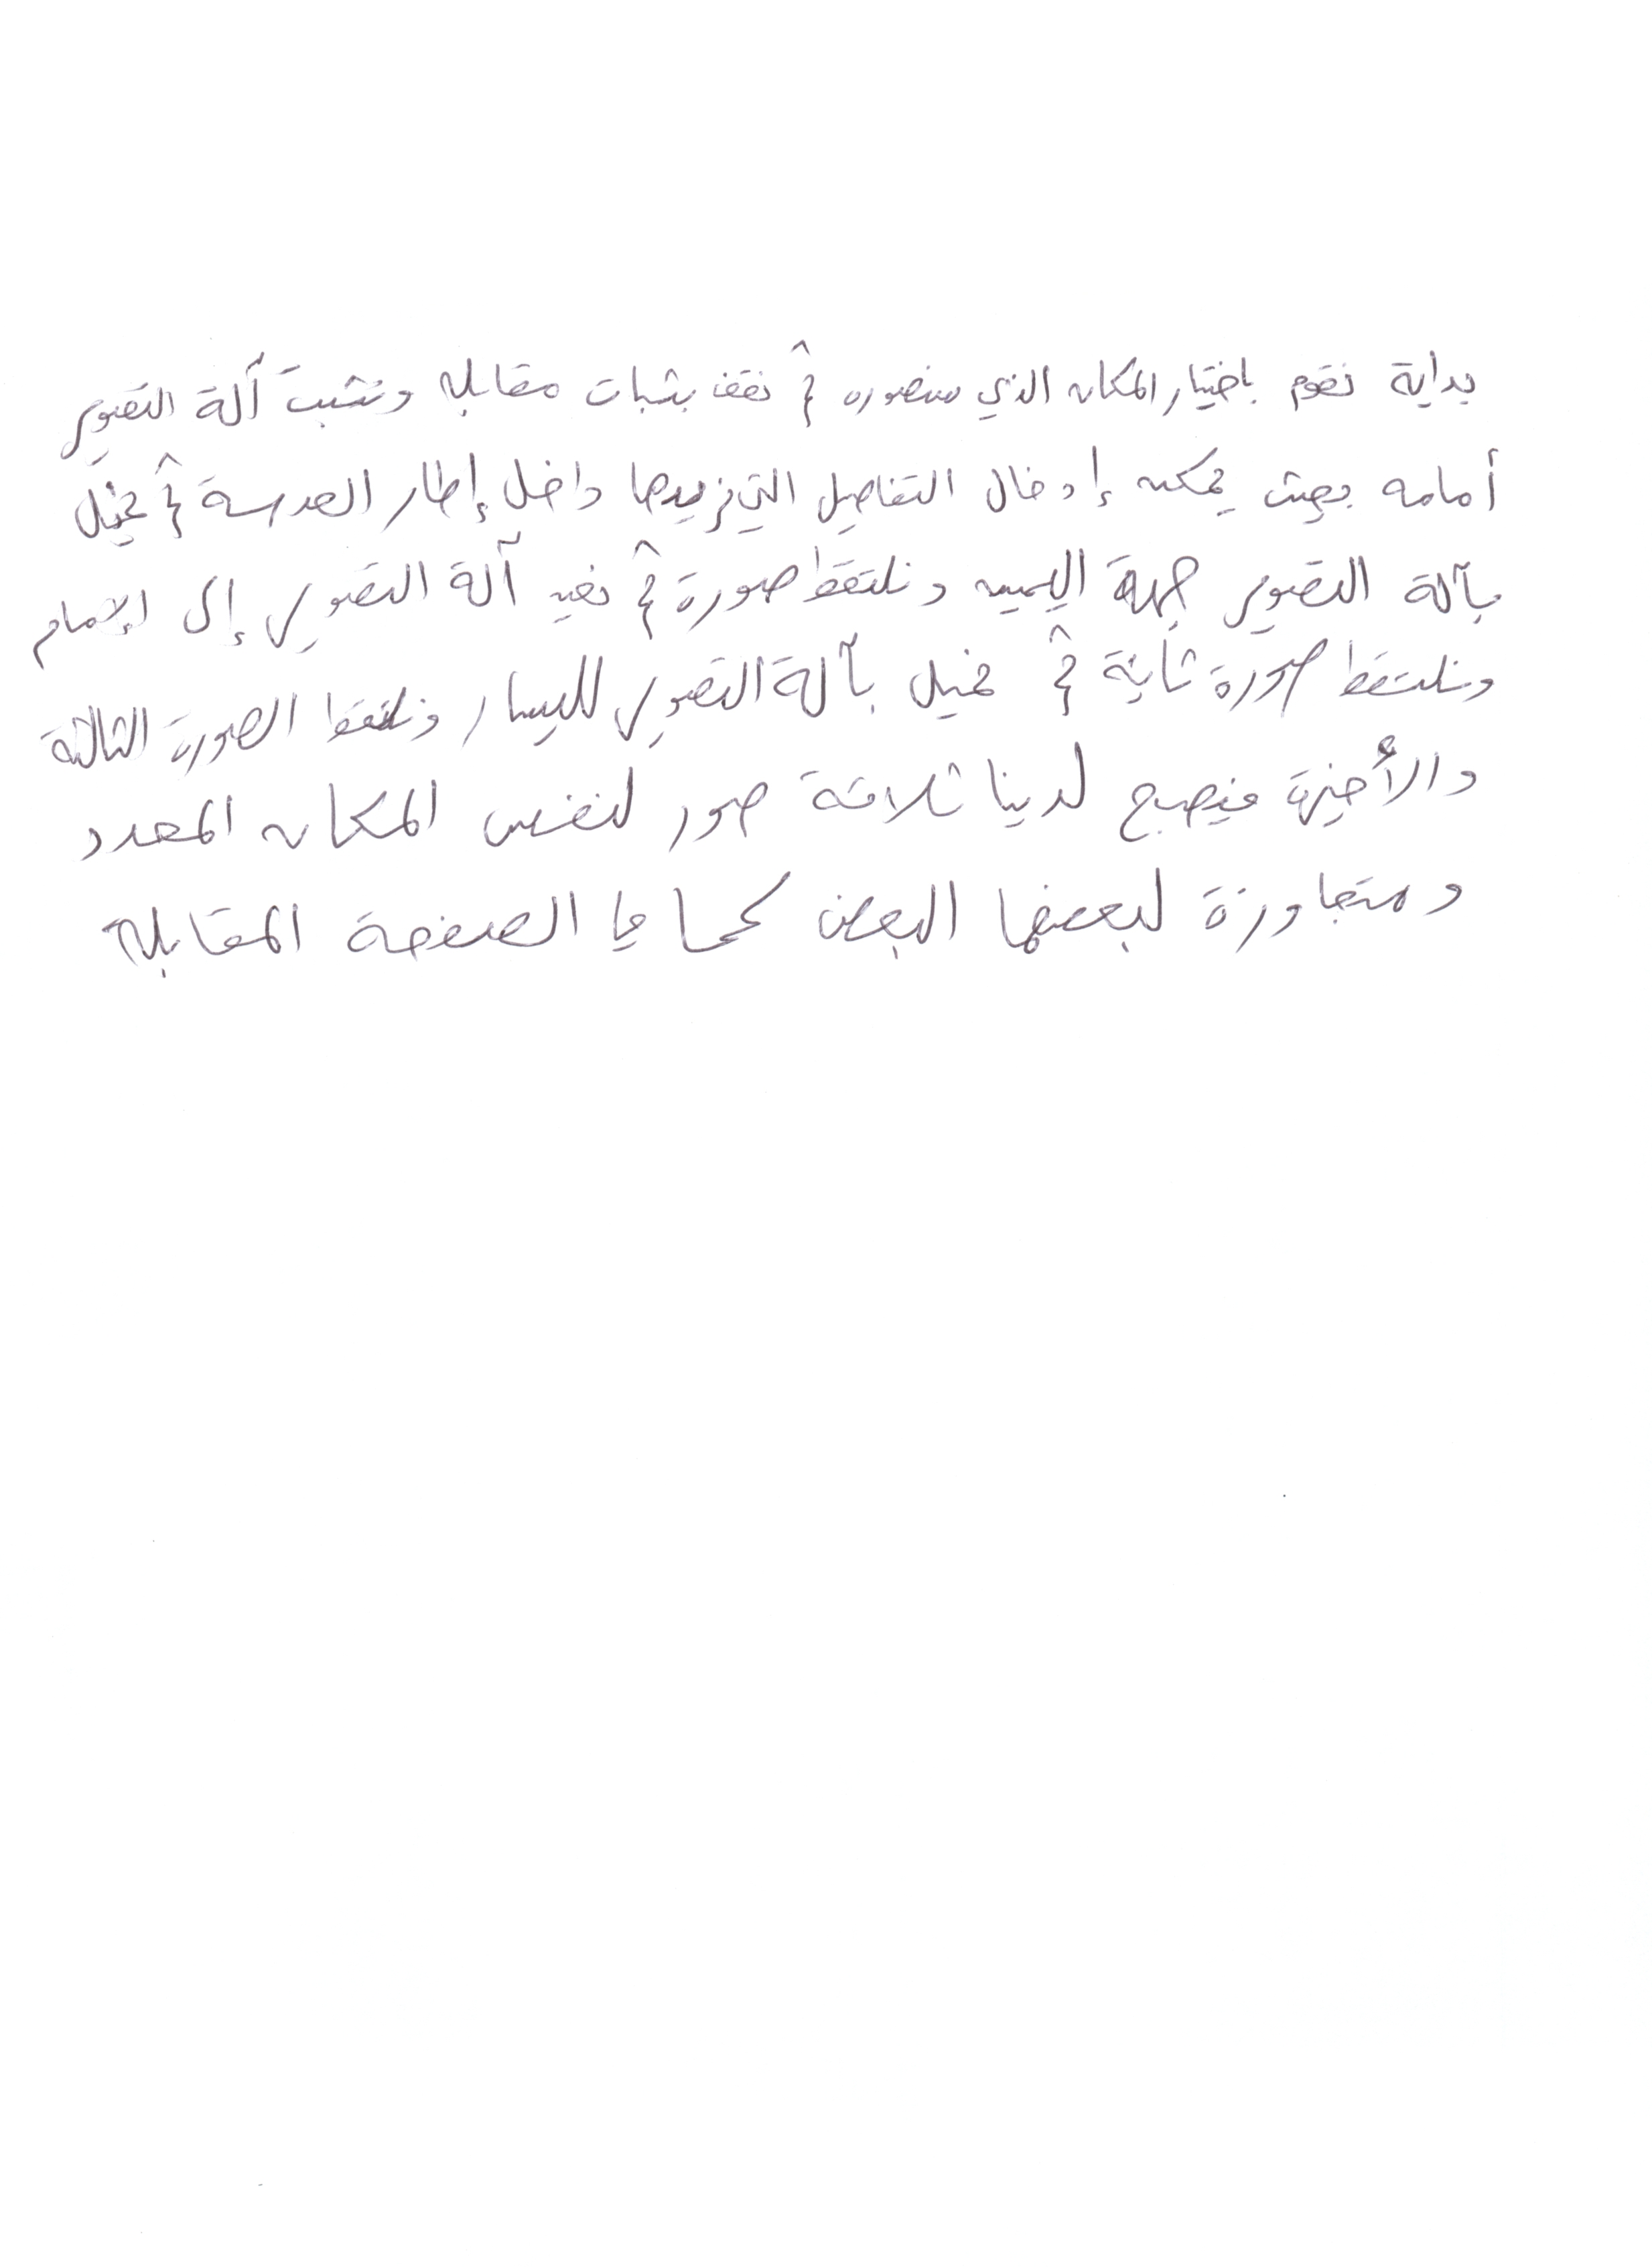 بداية نقوم باختيار المكان الذي سنصوره ثم نقف بثبات مقابله ونثبت آلة التصوير
أمامه بحيث يمكنه إدخال التفاصيل التي نريدها داخل إطار العدسة ثم نميل
بآلة التصوير جهة اليمين ونلتقط صورة ثم نعيد آلة التصوير إلى الأمام
ونلتقط صورة ثانية ثم نميل بآلة التصوير لليسار ونلتقط الصورة الثالثة
والأخيرة فيصبح لدينا ثلاثة صور لنفس المكان المحدد
ومتجاورة لبعضها البعض كما في الصفحة المقابلة